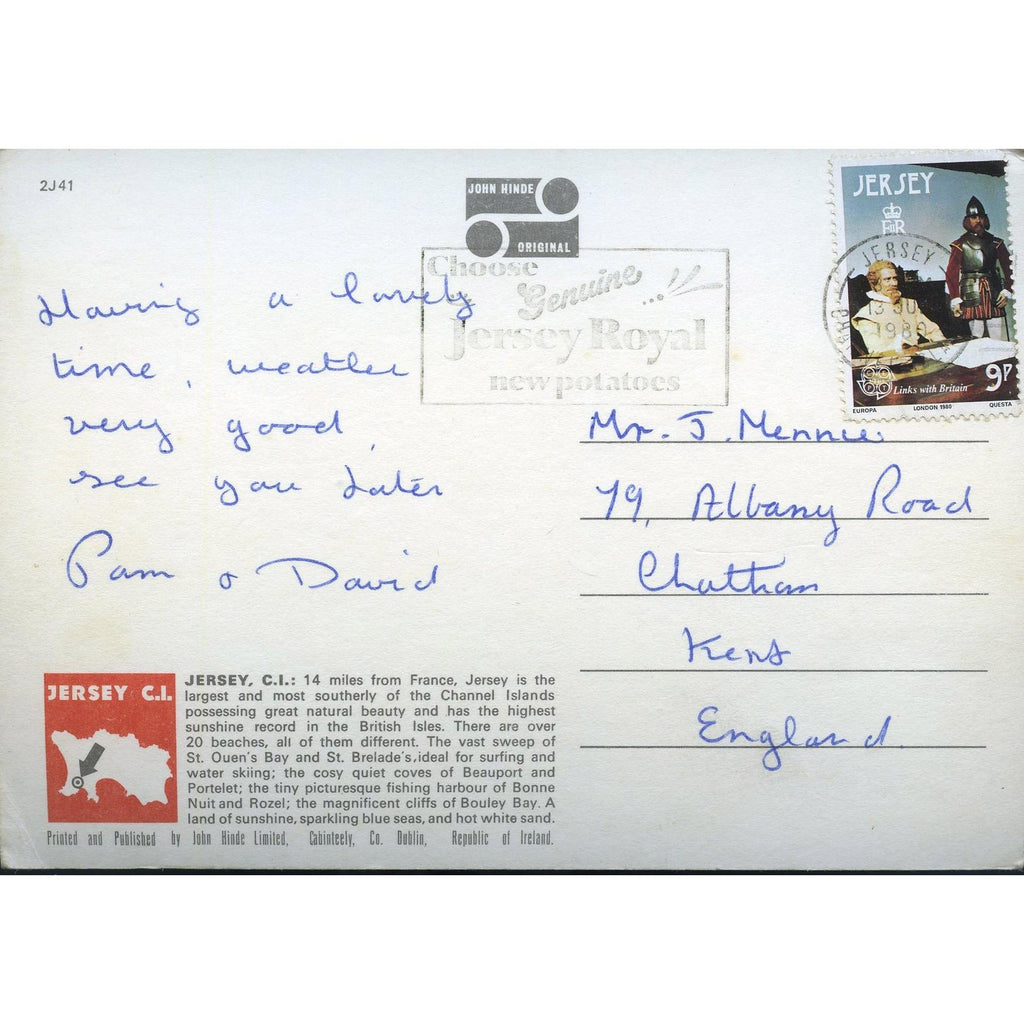 2J41
JOHN HINDE
ORIGINAL
Choose
Genuine...
Jersey Royal
new potatoes
JERSEY
E II R
JERSEY
1980
Links with Britain
9P
EUROPA LONDON 1980 QUESTA
Having a lovely
time, weather
very good,
see you later
Pam & David
Mr. J. Mennie.
79, Albany Road
Chatham
Kent
England.
JERSEY C.I.
JERSEY, C.I.: 14 miles from France, Jersey is the
largest and most southerly of the Channel Islands
possessing great natural beauty and has the highest
sunshine record in the British Isles. There are over
20 beaches, all of them different. The vast sweep of
St. Ouen's Bay and St. Brelade's, ideal for surfing and
water skiing; the cosy quiet coves of Beauport and
Portelet; the tiny picturesque fishing harbour of Bonne
Nuit and Rozel; the magnificent cliffs of Bouley Bay. A
land of sunshine, sparkling blue seas, and hot white sand.
Printed and Published by John Hinde Limited, Cabinteely, Co. Dublin, Republic of Ireland.